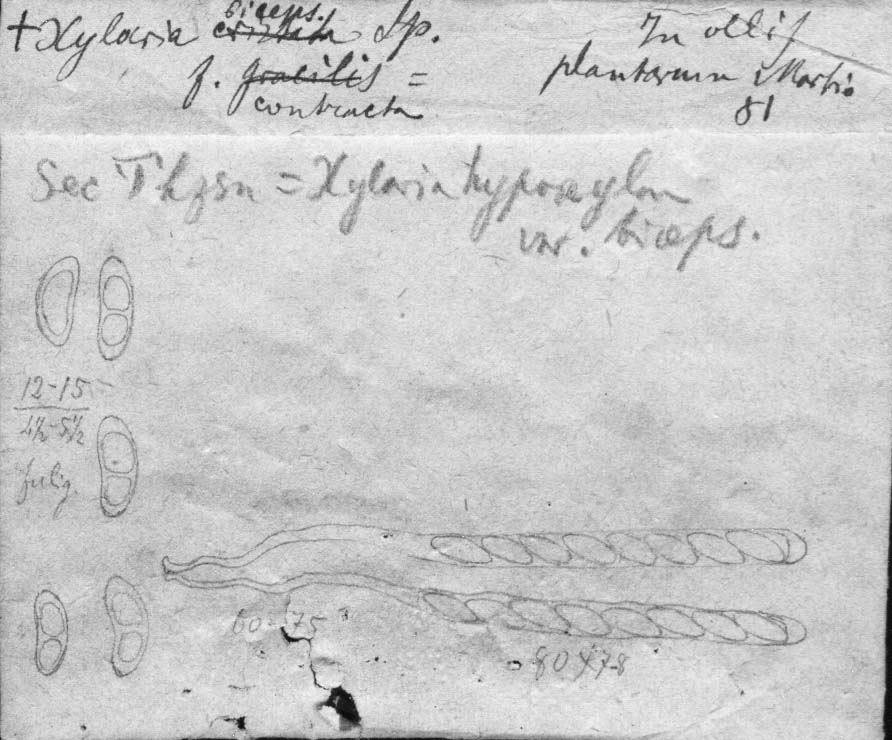 † Xylaria biceps. Sp.
f. gracilis =
contracta
In ollis
plantarum Martio
81
Sec Thzsn = Xylaria hypoxylon
var. biceps.
12-15
4½-5½
fulig.
60-75
80 × 7-8